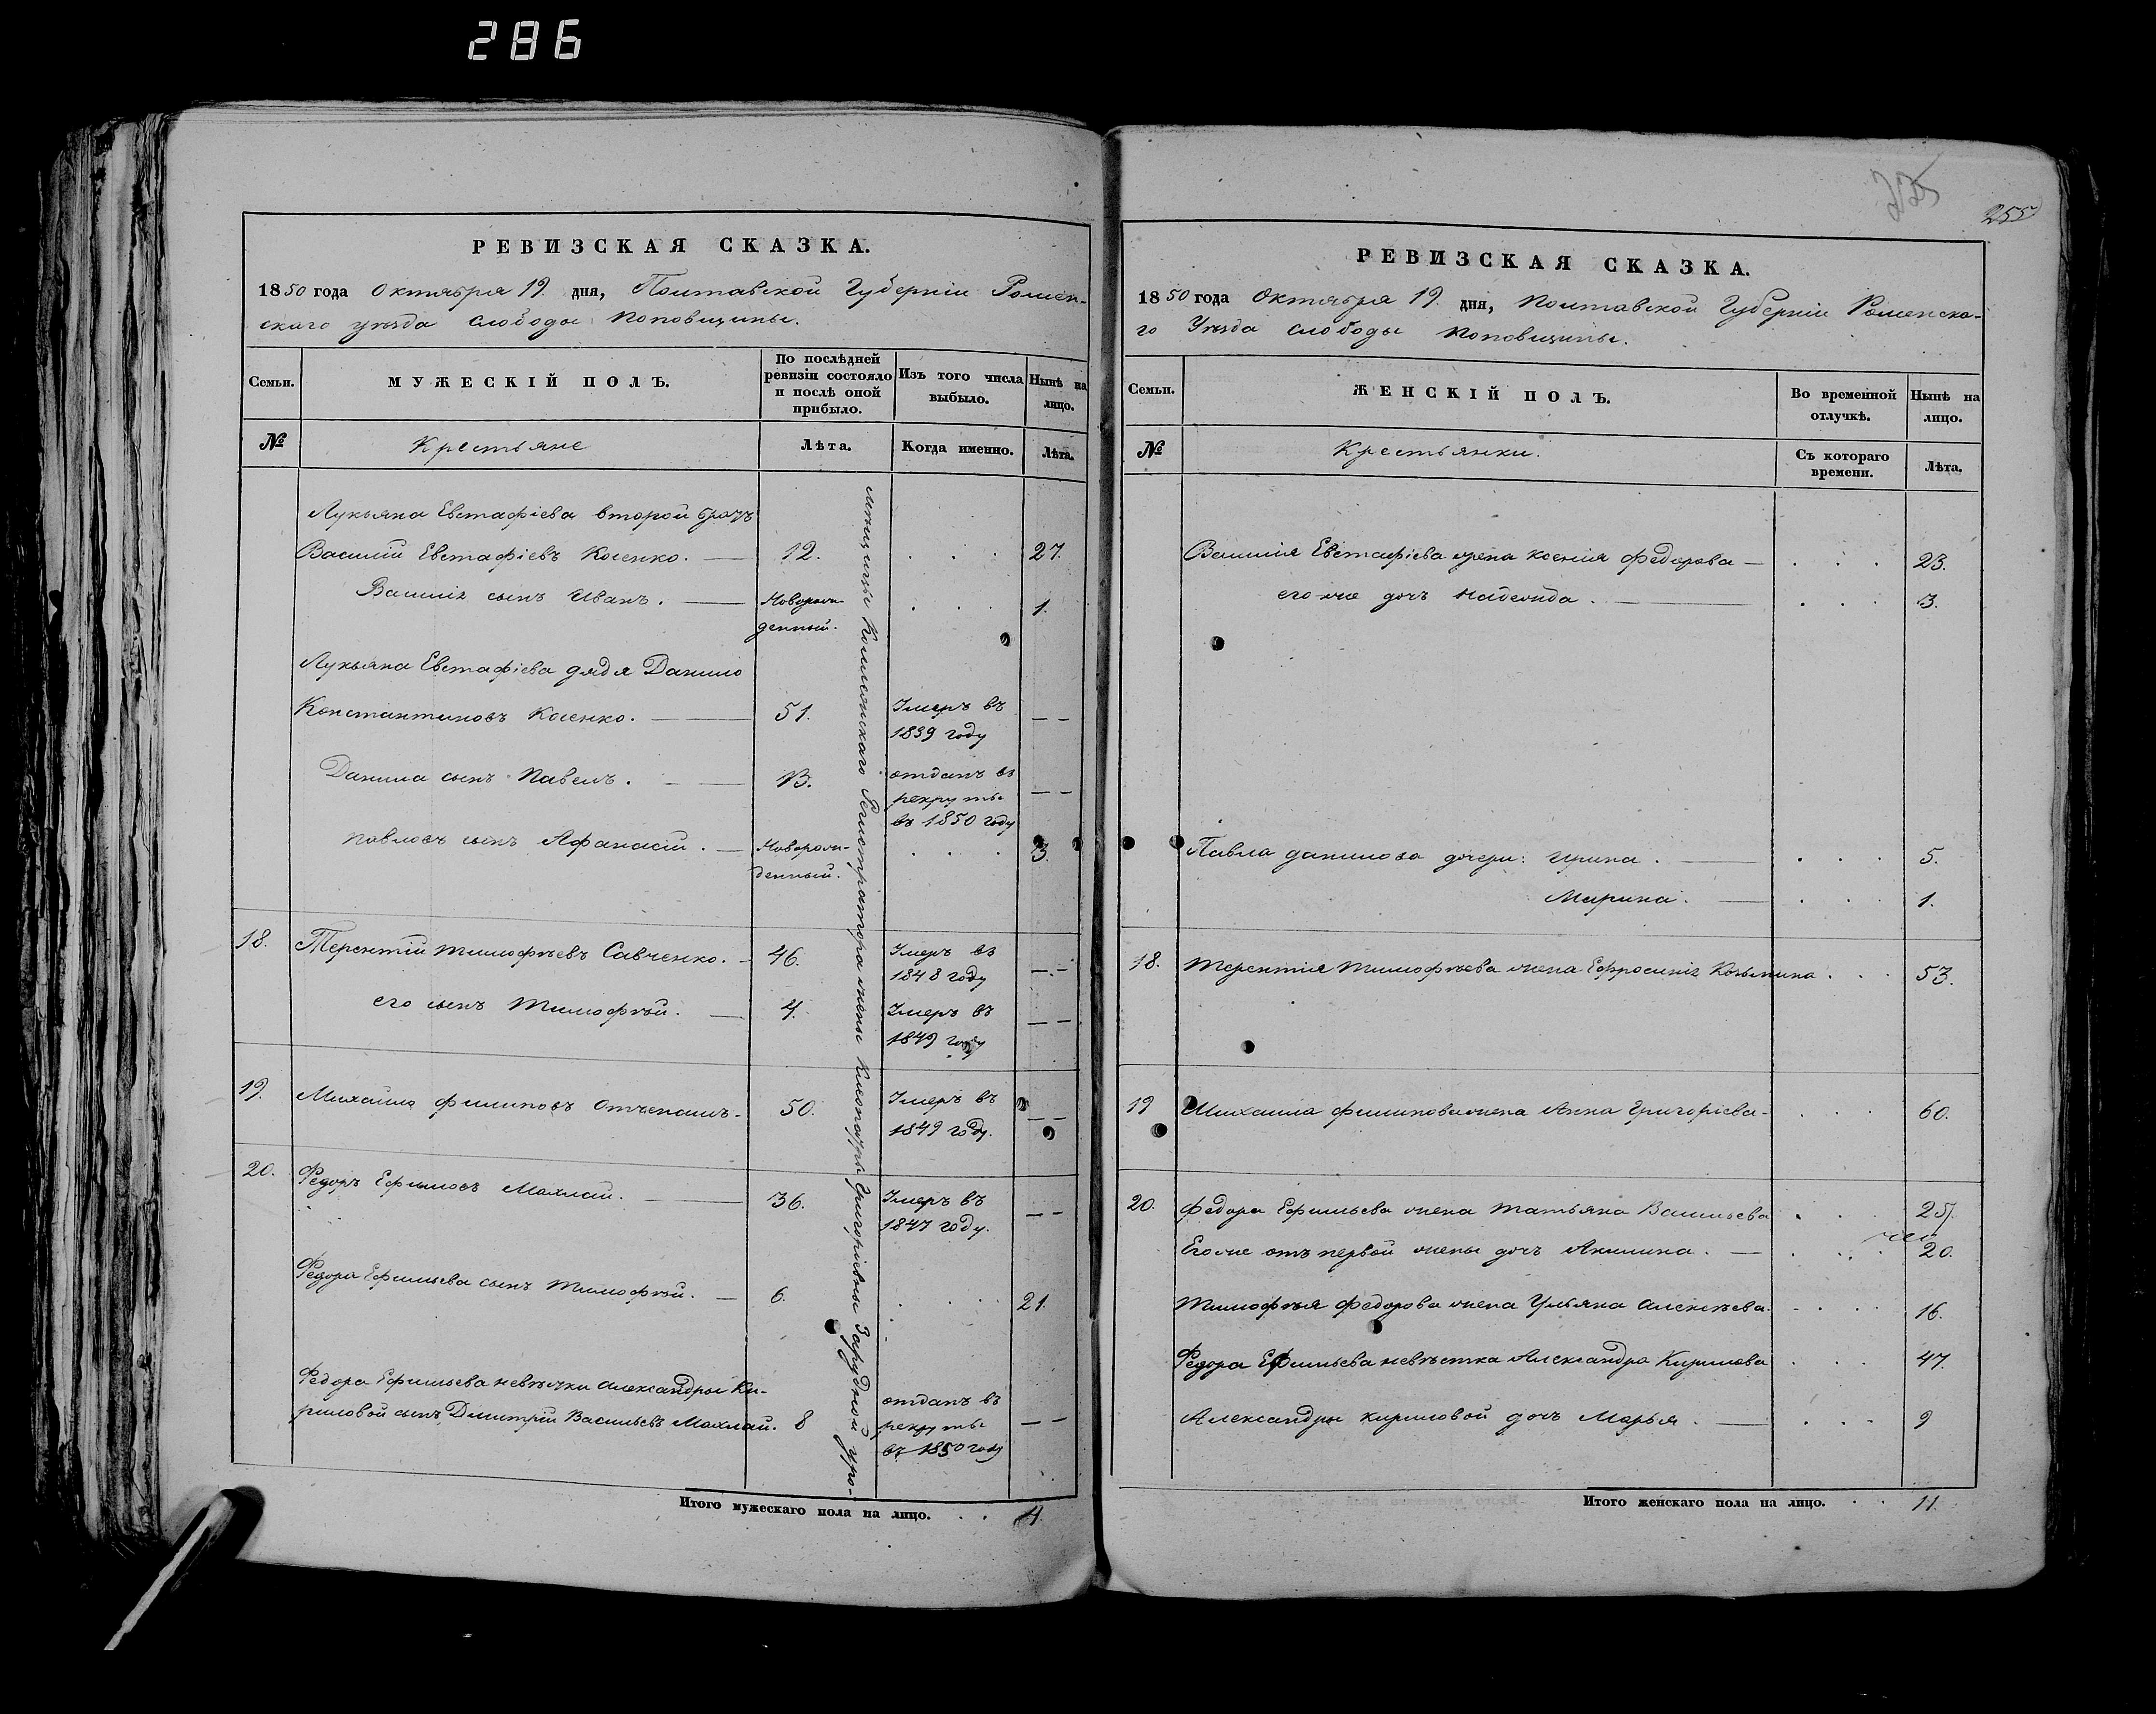 286
РЕВИЗСКАЯ СКАЗКА.
1850 года Октября 19. дня, Полтавской Губерніи Ромен-
скаго уѣзда слободы Поповщины.
Семьи.
МУЖЕСКІЙ ПОЛЪ.
По послѣдней
ревизіи состояло
и послѣ оной
прибыло.
Изъ того числа
выбыло.
Нынѣ на
лицо.
№
Крестьяне
Лѣта.
Когда именно.
Лѣта.
Лукьяна Евстафіева второй братъ
Василій Евстафіевъ Косенко. — 12. . . . 27.
Василія сынъ Иванъ. — Новорож- . . . 1.
денный.
Лукьяна Евстафіева дядя Данило
Константиновъ Косенко. — 51. Умеръ въ — —
1839 году
Данила сынъ Павелъ. — 13. отданъ въ — —
рекруты
въ 1850 году
Павловъ сынъ Афанасій. — Новорож- . . . 3.
денный.
18. Терентій Тимофѣевъ Савченко. — 46. Умеръ въ — —
1848 году
его сынъ Тимофѣй. — 4. Умеръ въ — —
1849 году
19. Михайло Филиповъ Отченашъ. 50. Умеръ въ — —
1849 году.
20. Федоръ Ефимовъ Махлай. — 36. Умеръ въ — —
1847 году.
Федора Ефимьева сынъ Тимофѣй. — 6. . . . 21.
Федора Ефимьева невѣстки Александры Ки-
риловой сынъ Дмитрій Васильевъ Махлай. 8 отданъ въ — —
рекруты
въ 1850 году
Регистратора жены Григоріевны Зарудной уро-
Итого мужескаго пола на лицо. . . 4
225
255
РЕВИЗСКАЯ СКАЗКА.
1850 года Октября 19. дня, Полтавской Губерніи Роменска-
го Уѣзда слободы Поповщины.
Семьи.
ЖЕНСКІЙ ПОЛЪ.
Во временной
отлучкѣ.
Нынѣ на
лицо.
№
Крестьянки.
Съ котораго
времени.
Лѣта.
Василія Евстафіева жена Ксенія Федорова — . . . 23.
его же дочь Надежда. — . . . 3.
Павла Данилова дочери: Ирина. — . . . 5.
Марина. — . . . 1.
18. Терентія Тимофѣева жена Ефросинія Козьмина . . . 53.
19 Михаила Филипова жена Анна Григоріева — . . . 60.
20. Федора Ефимьева жена Татьяна Васильева . . . 25.
Его же отъ первой жены дочь Акилина. — . . . 20.
Тимофѣя Федорова жена Ульяна Алексѣева. . . . 16.
Федора Ефимьева невѣстка Александра Кирилова . . . 47.
Александры Кириловой дочь Марья. — . . . 9
Итого женскаго пола на лицо. . . 11.